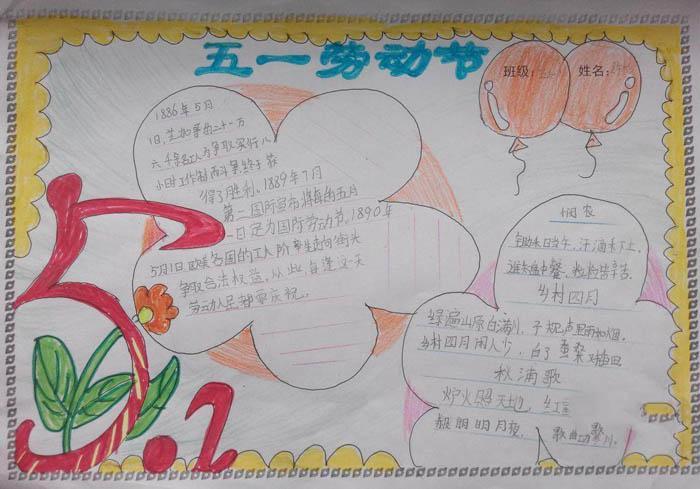 五一劳动节
班级:
姓名:
1886年5月
1日,芝加哥的二十一万
六千多名工人为争取实行八
小时工作制而斗争,终于获
得了胜利。1889年7月
第一国际宣布将每的五月
一日定为国际劳动节,1890年
5月1日,欧美各国的工人阶率先走向街头
争取合法权益,从此每逢这一天
劳动人民都要庆祝。
5.1
悯农
锄禾日当午,汗滴禾下土,
谁知盘中餐,粒粒皆辛苦。
乡村四月
绿遍山原白满川,子规声里雨如烟。
乡村四月闲人少,才了蚕桑又插田
秋浦歌
炉火照天地,红星
赧明明月夜,歌曲动寒川。